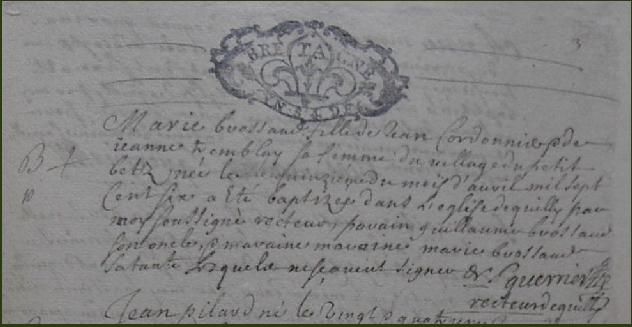 3
BRETAGNE
UN S. & DE
B
Marie brossaud fille de Jean Cordonnier & de
ieanne tremblay sa femme du village du petit
betz née le quinzieme du mois d'auril mil sept
Cent six a été baptizée dans l'eglise de quilly par
moy soussigné recteur, parain guillaume brossaud
son oncle, & maraine marie brossaud
sa tante lesquels ne scauent signer
guerrier
recteur de quilly
Jean pilard né le vingt & quatrieme